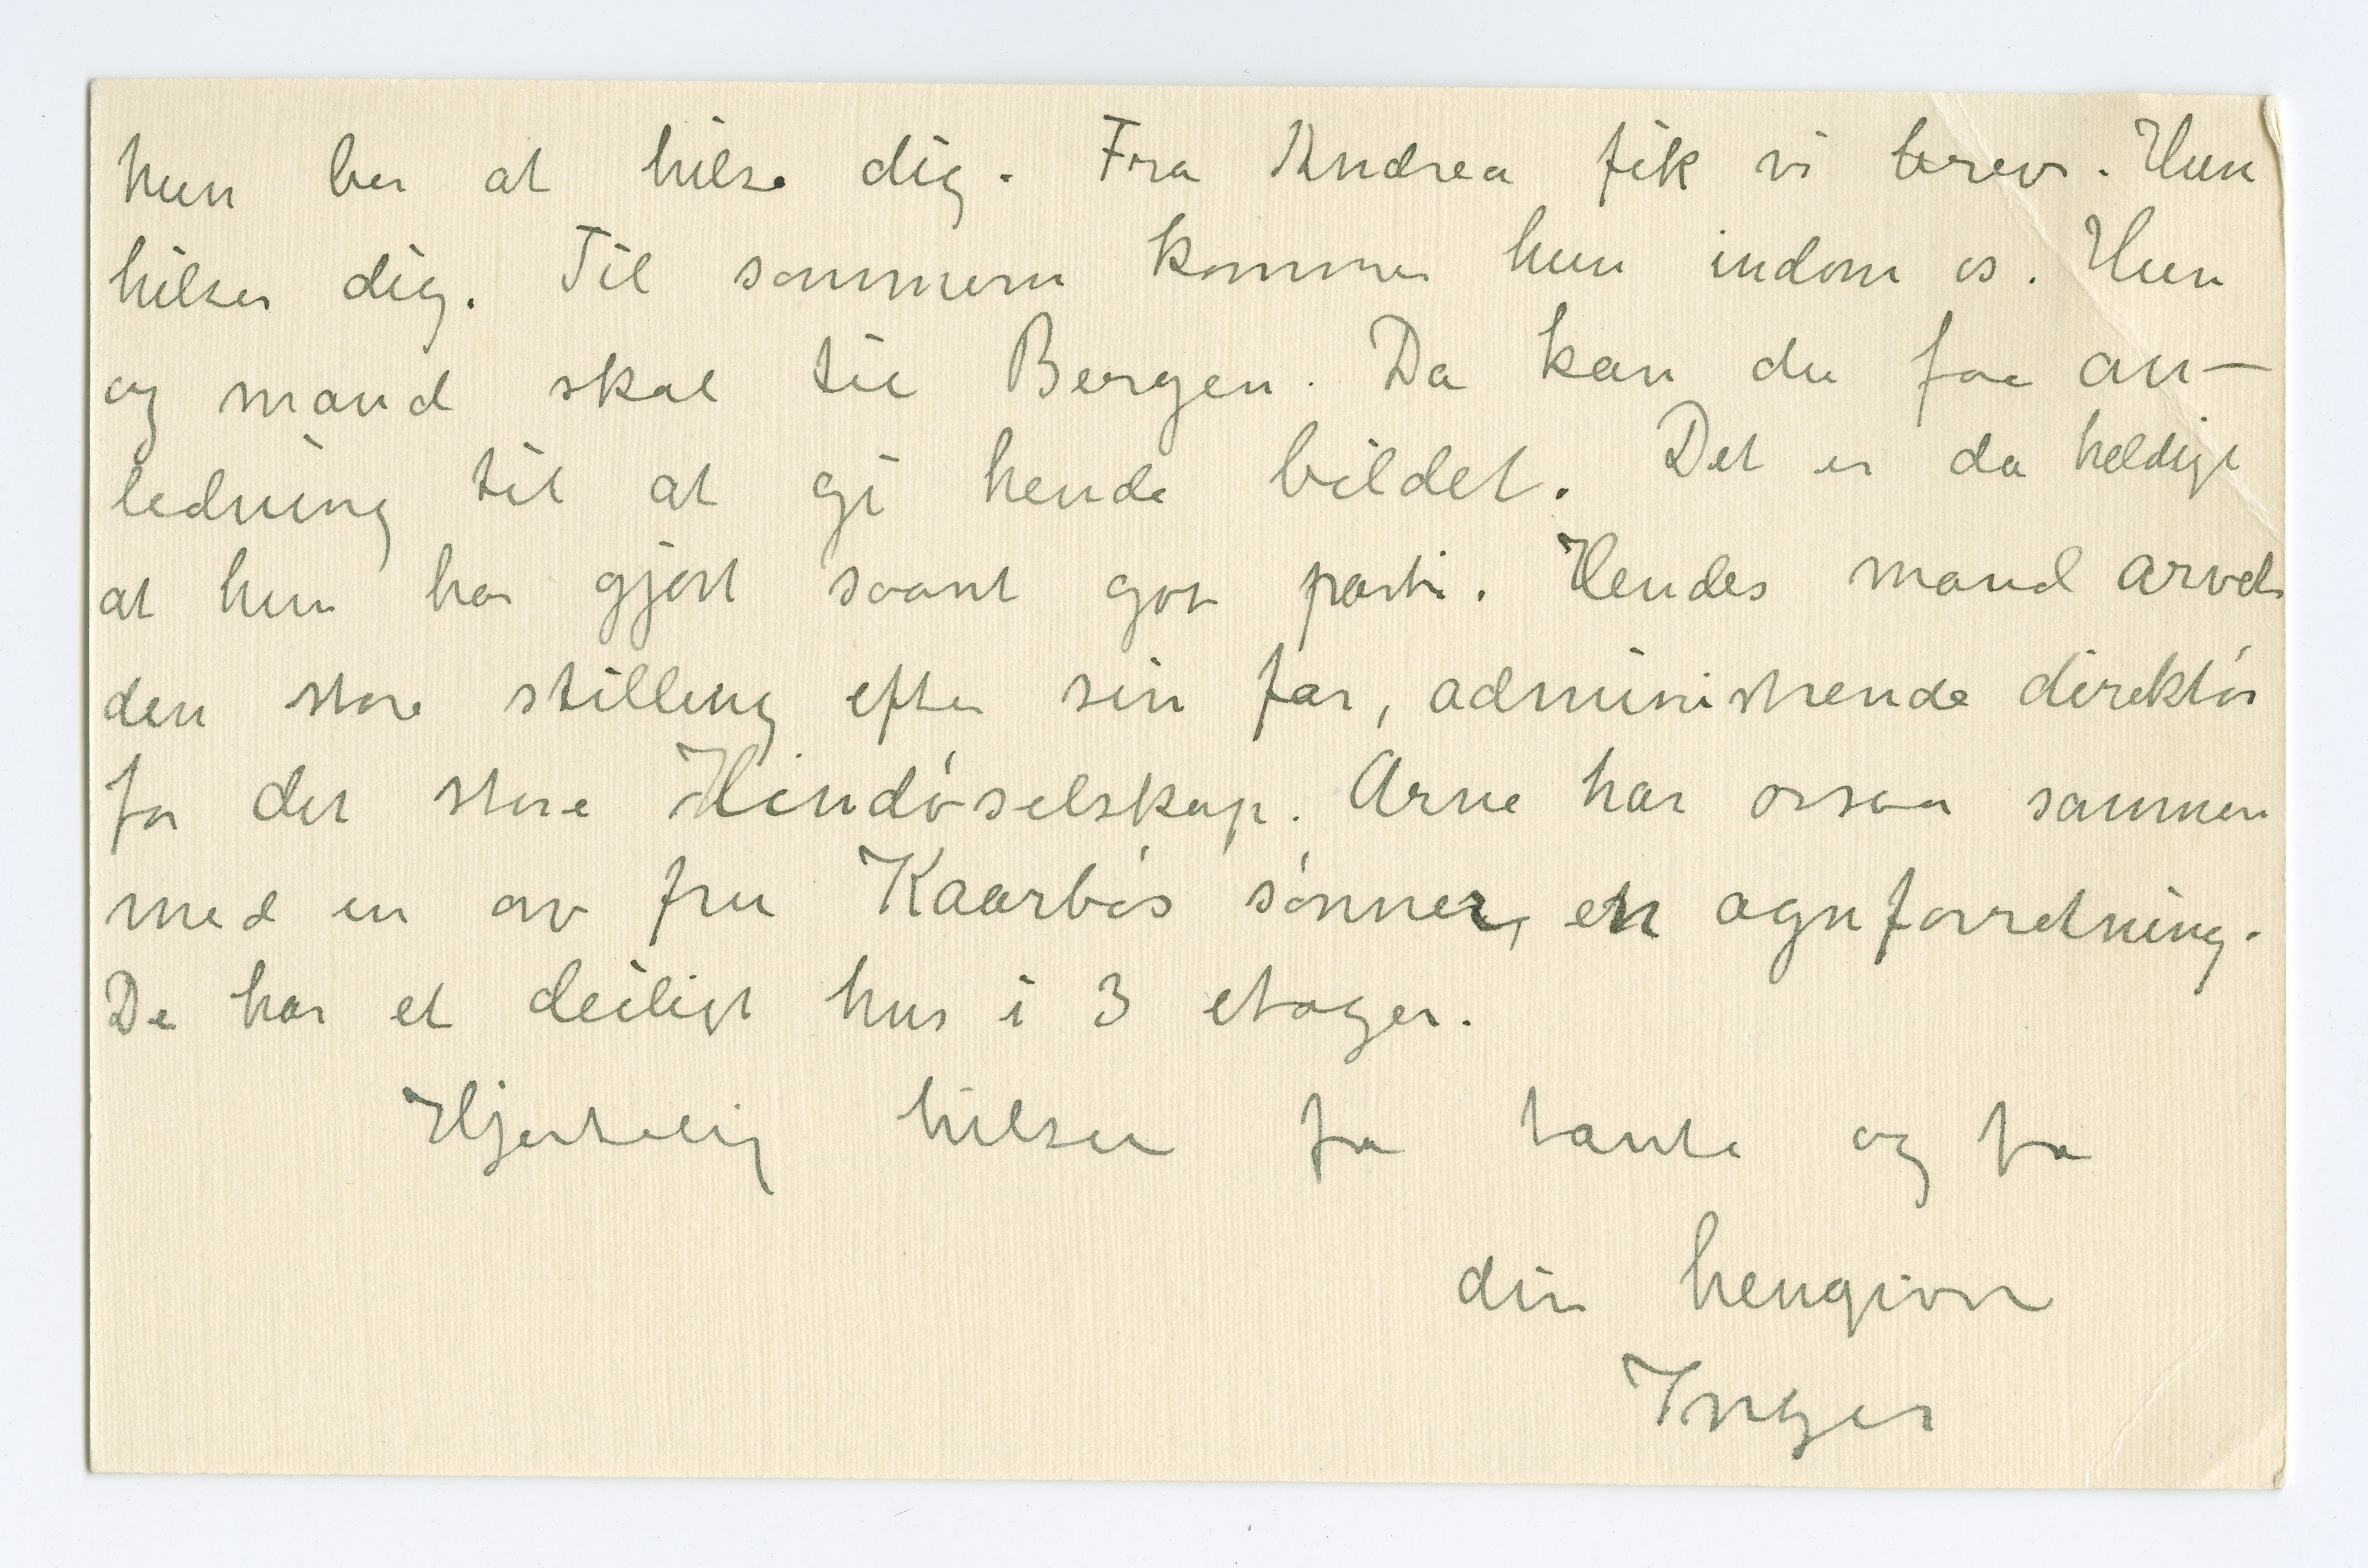 hun ber at hilse dig. Fra Andrea fik vi brev. Hun
hilser dig. Til sommeren kommer hun indom os. Hun
og mand skal til Bergen. Da kan du faa an-
ledning til at gi hende bildet. Det er da heldigt
at hun har gjort saant got parti. Hendes mand arvet
den store stilling efter sin far, administrende direktör
for det store Hindöselskap. Arne har ossaa sammen
med en av fru Kaarbös sönner, en agnforretning.
De har et deiligt hus i 3 etager.
Hjertelig hilsen fra tante og fra
din hengivne
Inger